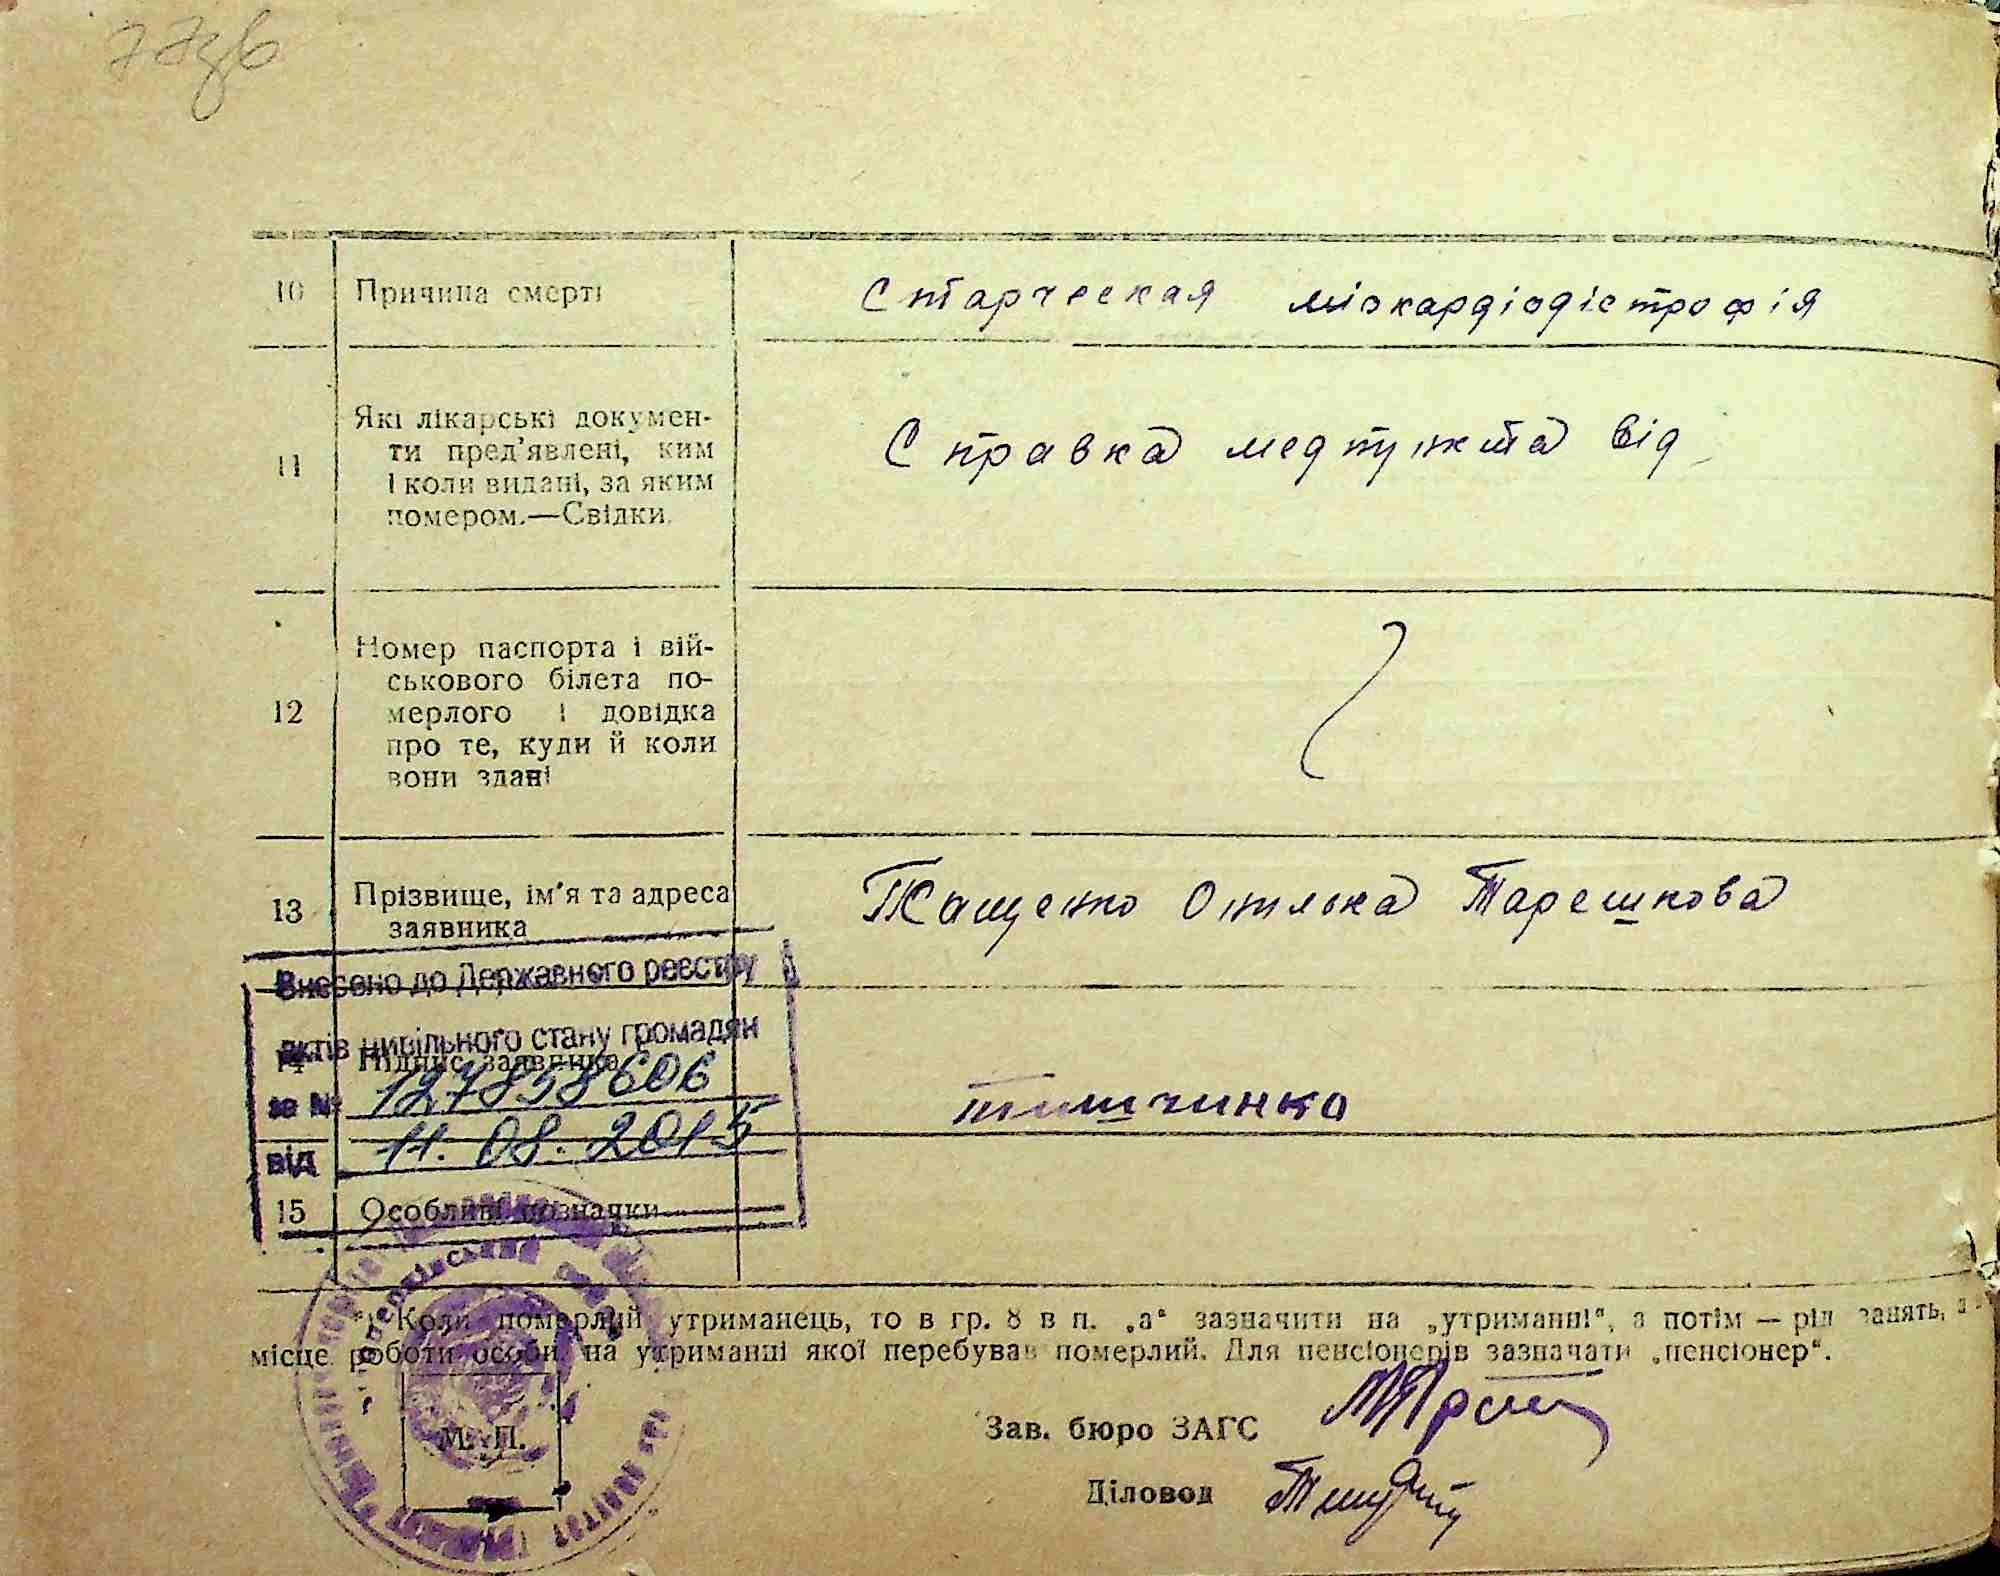 77зв
10 Причина смерті Старческая міокардіодістрофія
Які лікарські докумен-
ти пред’явлені, ким
11 Справка медпункта від
і коли видані, за яким
помером.—Свідки.
Номер паспорта і вій-
ськового білета по-
12 мерлого і довідка
про те, куди й коли
вони здані
13 Прізвище, ім’я та адреса
заявника
Тарешкова
Внесено до Державного реєстру
актів цивільного стану громадян
14 Підпис заявника
за № 127858606
від 11.08.2015
15 Особливі позначки
*) Коли померлий утриманець, то в гр. 8 в п. „а“ зазначити на „утриманні“, а потім — рід занять,
місце роботи особи, на утриманні якої перебував померлий. Для пенсіонерів зазначати „пенсіонер“.
Зав. бюро ЗАГС
М. П.
Діловод